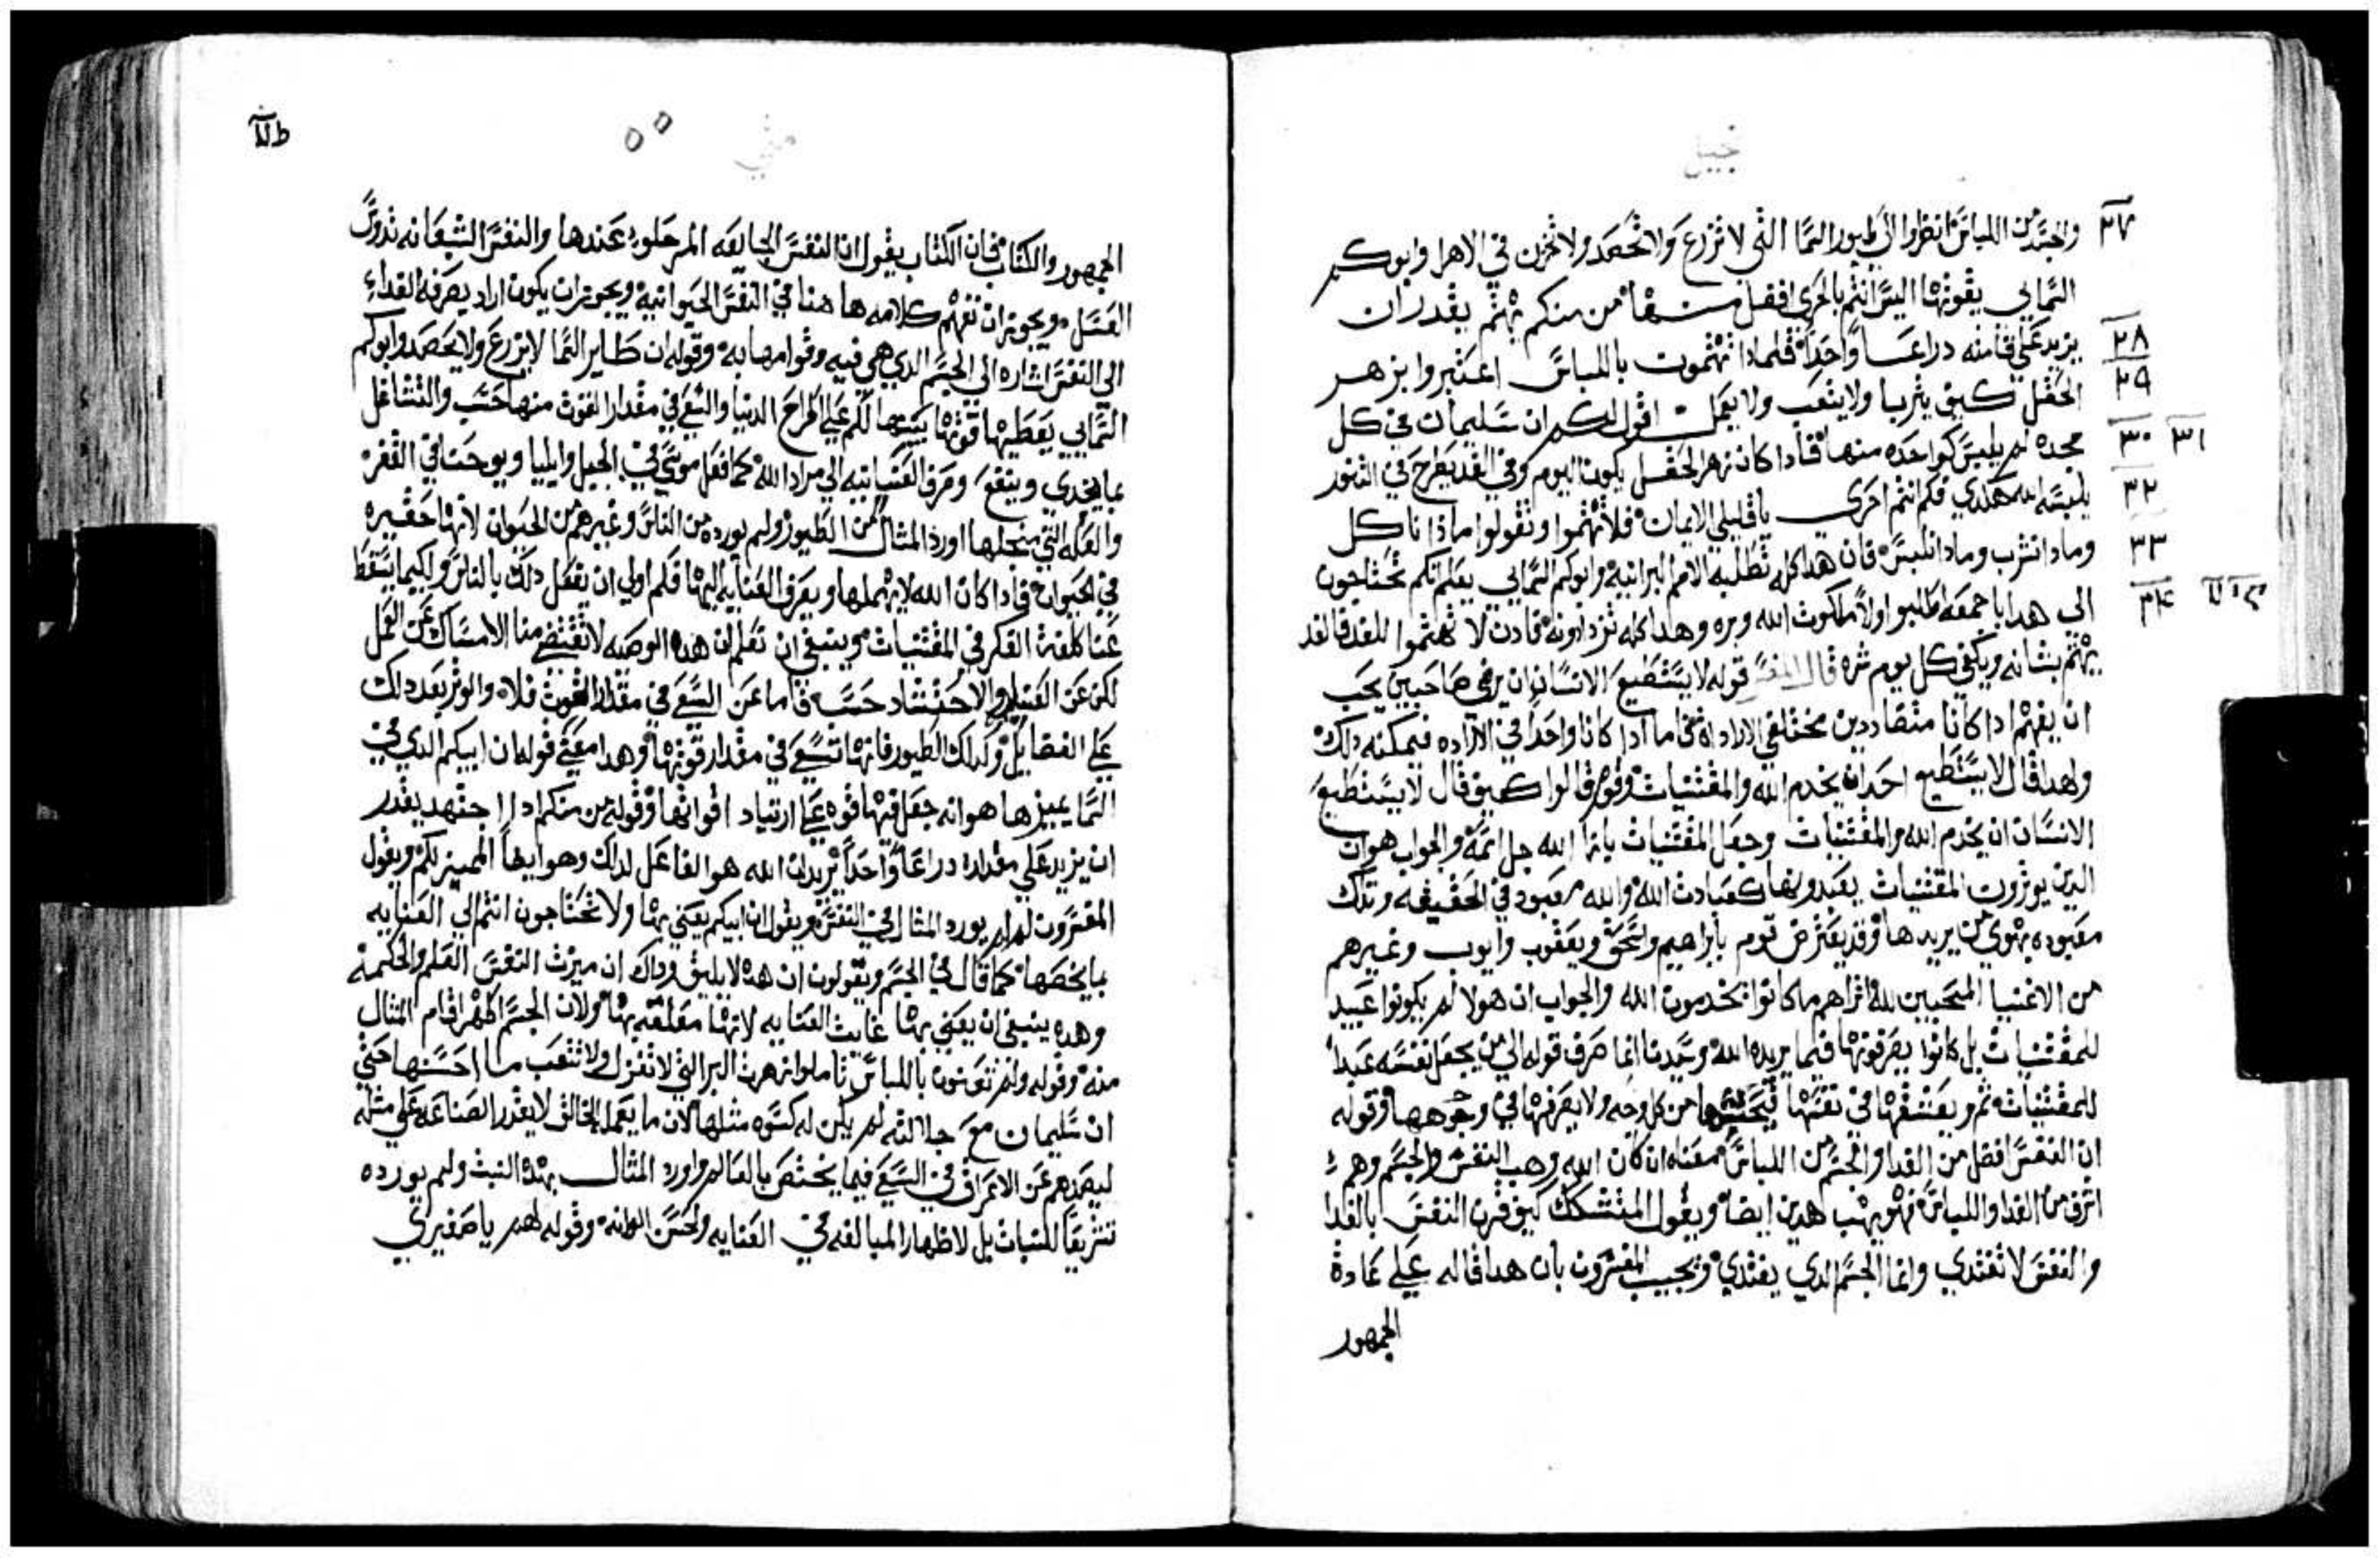 نجيل
٢٧ والجسد من اللباس انظروا الى طيور السما التي لا تزرع ولا تحصد ولا تخزن في الاهرا وابوكم
السمايي يقوتها اليس انتم بالحرى افضل منها من منكم يهتم يقدر ان
٢٨ يزيد على قامته دراعا واحدا فلمادا تهتموت باللباس اعتبروا بزهر
٢٩ الحقل كيف يتربا ولا يتعب ولا يعمل اقول لكم ان سليمان في كل
٣٠ ٣١ مجده لم يلبس كواحده منها فادا كان زهر الحقل يكون اليوم وفي الغد يطرح في التنور
٣٢ يلبسه الله هكدي فكم انتم احرى يا قليلي الايمان فلا تهتموا وتقولوا ماذا ناكل
٣٣ وما دا نشرب وما دا نلبس فان هدا كله تطلبه الامم البرانيه وابوكم السمايي يعلم انكم تحتاجون
٣٤ الى هدا باجمعه اطلبوا اولا ملكوت الله وبره وهدا كله تزدادونه فادن لا تهتموا للغد فالغد
يهتم بشانه ويكفي كل يوم شره قال المفسر قوله لا يستطيع الانسان ان يرضي صاحبين يجب
ان يفهم ادا كانا متضاددين مختلفي الارادة فاما ادا كانا واحدا في الاراده فيمكنه دلك
ولهدا قال لا يستطيع احد ان يخدم الله والمقتنيات وقوم قالوا كيف قال لا يستطيع
الانسان ان يخدم الله والمقتنيات وجعل المقتنيات بازا الله جل اسمه والجواب هو ان
الدين يوثرون المقتنيات يعبدونها كعبادت الله والله معبود في الحقيقه وتلك
معبوده بهوي من يريدها وقد يعترض قوم بابراهيم واسحق ويعقوب وايوب وغيرهم
من الاغنيا المحبين لله اتراهم ما كانوا يخدمون الله والجواب ان هولا لم يكونوا عبيد
للمقتنيات بل كانوا يصرفونها فيما يريده الله وسيدنا انما صرف قوله الى من يجعل نفسه عبدا
للمقتنيات ثم ويعتنقها في نفسها من كل وجه ولا يصرفها في وجوهها وقوله
ان النفس افضل من الغدا والجسم من اللباس معناه ان كان الله وهب النفس والجسم وهم
اشرف من الغدا واللباس فهو يهب هدين ايضا ويقول المتشكك كيف قرن النفس بالغدا
والنفس لا تغتدي وانما الجسم الدي يغتدي ويجيب المفسرون بان هدا قاله على عادة
الجمهور
متي
الجمهور والكتاب فان الكتاب يقول ان النفس الجايعه المر حلو عندها والنفس الشبعانه تدوس
العسل ويجوز ان تفهم كلامه ها هنا في النفس الحيوانيه ويجوز ان يكون اراد يصرفه الغداء
الى النفس اشاره الى الجسم الدي هي فيه وقوامها به وقوله ان طاير السما لا يزرع ولا يحصد وابوكم
السمايي يعطيها قوتها يبينها لكم على اطراح الدنيا والسعي في مقدار القوت منها حسب والتشاغل
بما يجدي وينفع وصرف العنايه الى مراد الله كما فعل موسى في الجبل وايليا ويوحنا في القفر
والعله التي من اجلها اورد المثال من الطيور ولم يورده من الناس وغيرهم من الحيوان لانها حقيره
في الحيوان فادا كان الله لا يهملها ويصرف العنايه اليها فكم اولي ان يفعل دلك بالناس ولكيما يسقط
عنا كلفة الفكر في المقتنيات وينبغي ان تعلم ان هده الوصيه لا تقتضي منا الامساك عن العمل
لكن عن القنيه والاحتشاد حسب فاما عن السعي في مقدار القوت فلا والوثر بعد دلك
على الفضايل وكدلك الطيور فانها تسعي في مقدار قوتها وهدا معنى قوله ان ابيكم الدي في
السما يميزها هو انه جعل فيها قوه على ارتياد اقواتها وقوله من منكم ادا اجتهد يقدر
ان يزيد على مقداره دراعا واحدا يريد ان الله هو الفاعل لدلك وهو ايضا المميز لكم ويقول
المفسرون لم لم يورد المثال في النفس ويقول ان ابيكم يعني بها ولا تحتاجون انتم الى العنايه
بما يخصها كما قال في الجسم ويقولون ان هدا لا يليق وداك ان ميزت النفس العلم والحكمه
وهده ينبغي ان يعني بها غايت العنايه لانها معلقه بها ولان الجسم اظهر اقام المثال
منه وقوله ولم تعنون باللباس تاملوا زهرت البر التي لا تغزل ولا تتعب ما احسنها حتي
ان سليمان مع جلالته لم يكن له كسوه مثلها لان ما يعمله الخالق لا يقدر الصناعه على مثله
ليصدهم عن الاغراق في السعي فيما يختص بالعالم واورد المثال بهدا النبت ولم يورده
تشريفا للنبات بل لاظهار المبالغه في العنايه ولحسن الوانه وقوله لهم يا صغيري